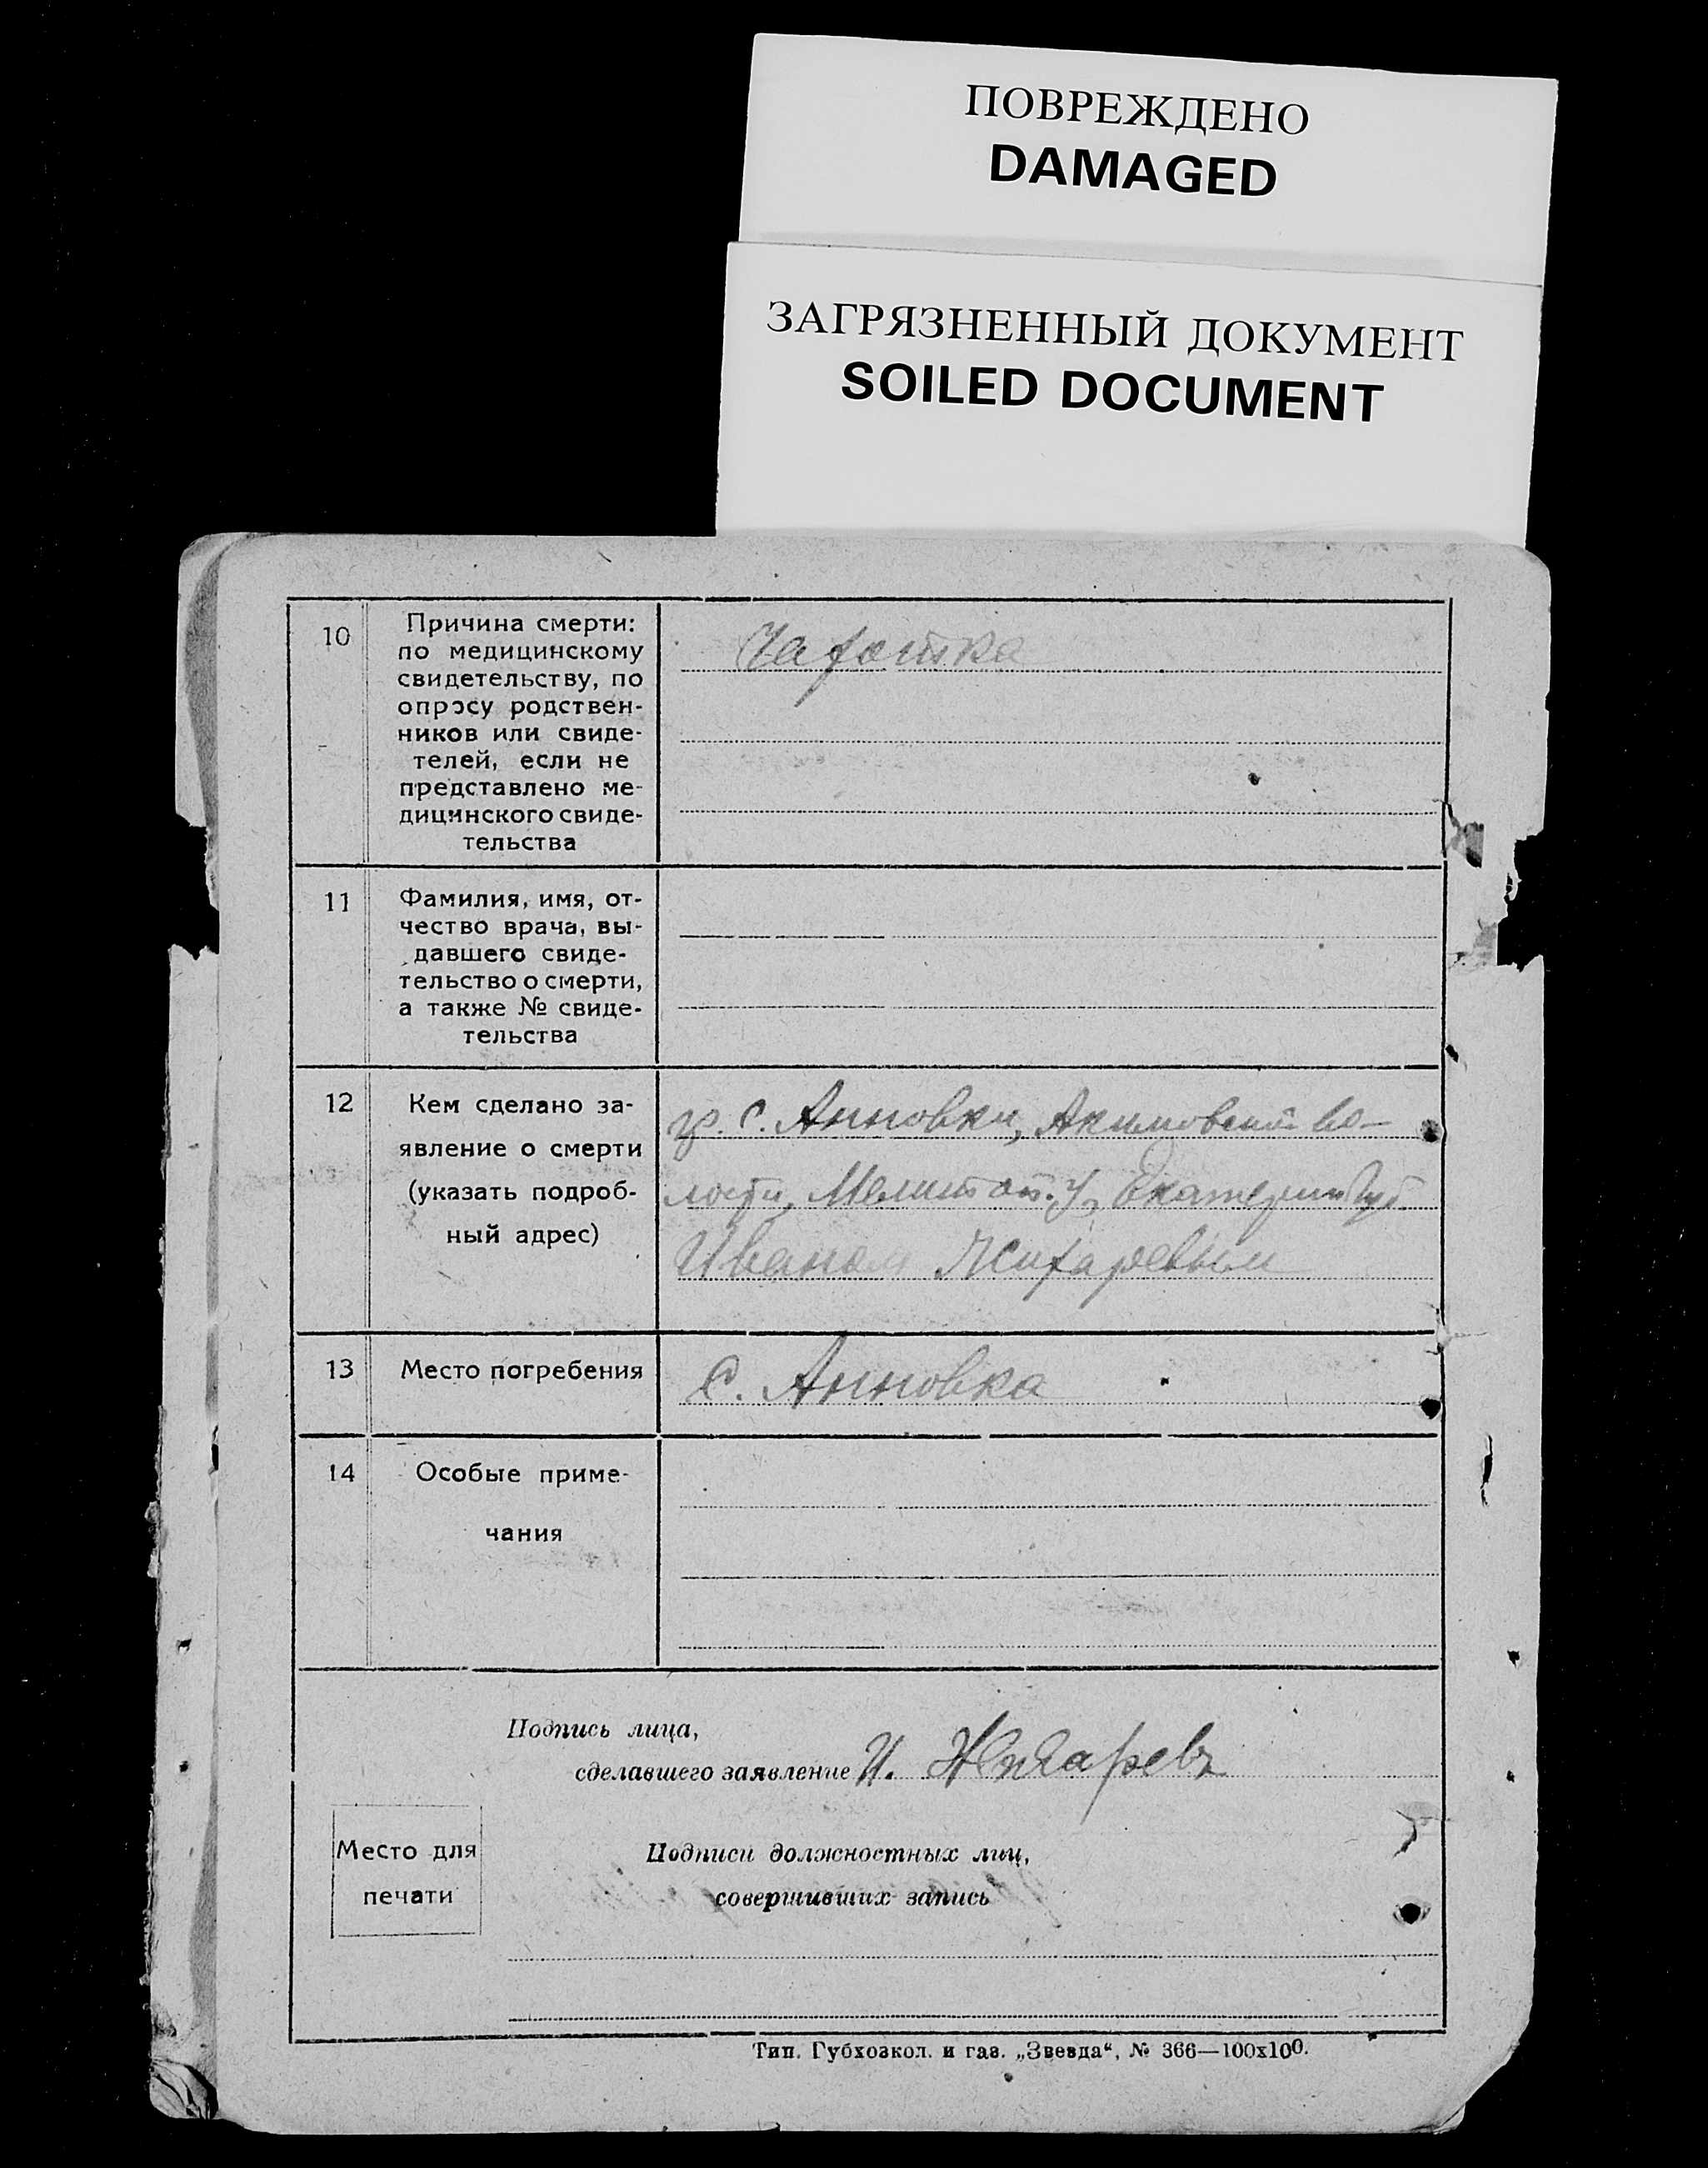 ПОВРЕЖДЕНО
DAMAGED
ЗАГРЯЗНЕННЫЙ ДОКУМЕНТ
SOILED DOCUMENT
10
Причина смерти:
по медицинскому
свидетельству, по
опросу родствен-
ников или свиде-
телей, если не
представлено ме-
дицинского свиде-
тельства
Чахотка
11
Фамилия, имя, от-
чество врача, вы-
давшего свиде-
тельство о смерти,
а также № свиде-
тельства
12
Кем сделано за-
явление о смерти
(указать подроб-
ный адрес)
гр. с. Анновки, Акимовской во-
лости, Мелитоп. у, Екатерин губ.
Иваном Жихаревым
13
Место погребения
С. Анновка
14
Особые приме-
чания
Подпись лица,
сделавшего заявление И. Жихаревъ
Место для
печати
Подписи должностных лиц,
совершивших запись
Тип. Губхозкол. и газ. „Звезда“, № 366—100х100.